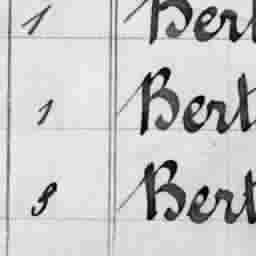 1 Bert
1 Bert
9 Bert